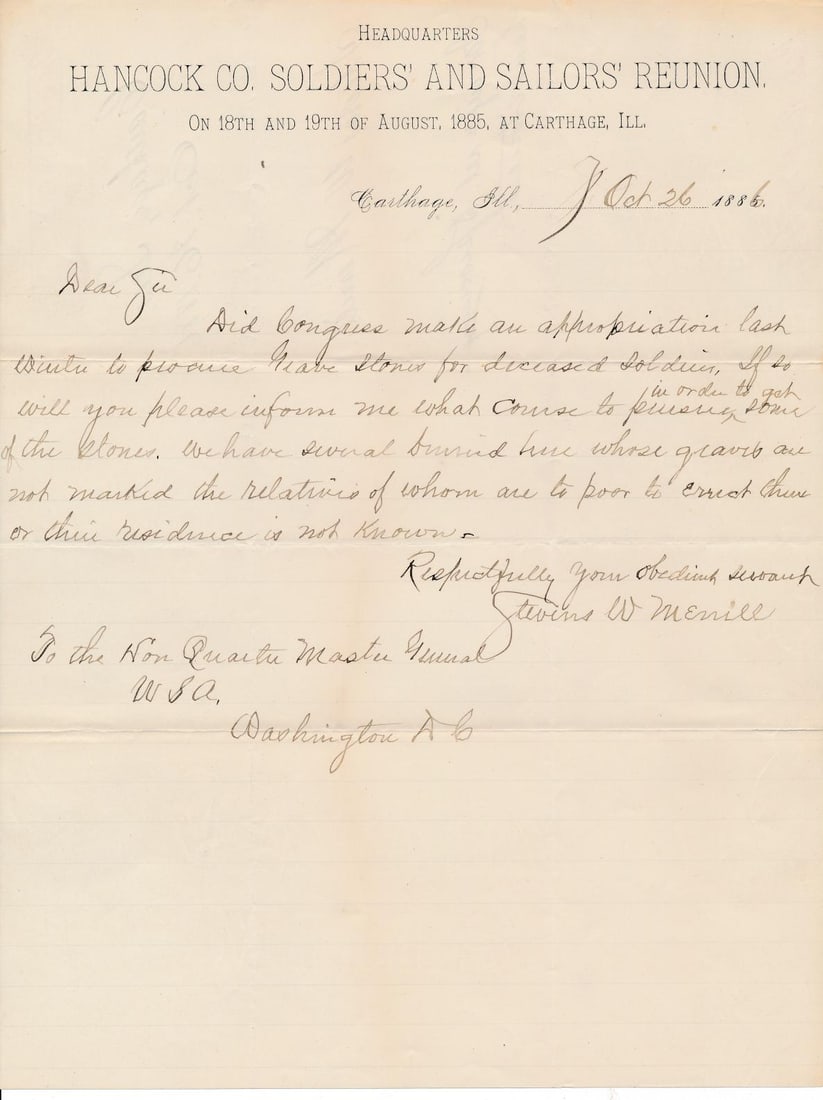 HEADQUARTERS
HANCOCK CO. SOLDIERS' AND SAILORS' REUNION.
ON 18TH AND 19TH OF AUGUST, 1885, AT CARTHAGE, ILL.
Carthage, Ill., Oct 26 1886.
Dear Sir
Did Congress make an appropriation last
Winter to procure Grave Stones for deceased soldiers, If so
in order to get
will you please inform me what course to pursue, ^ some
of the stones. We have several burried here whose graves are
not marked the relatives of whom are to poor to errect them
or their residence is not known.
Respectfully your obedient servant
Stevens W Merrill
To the Hon Quarter Master General
U S A.
Washington D C